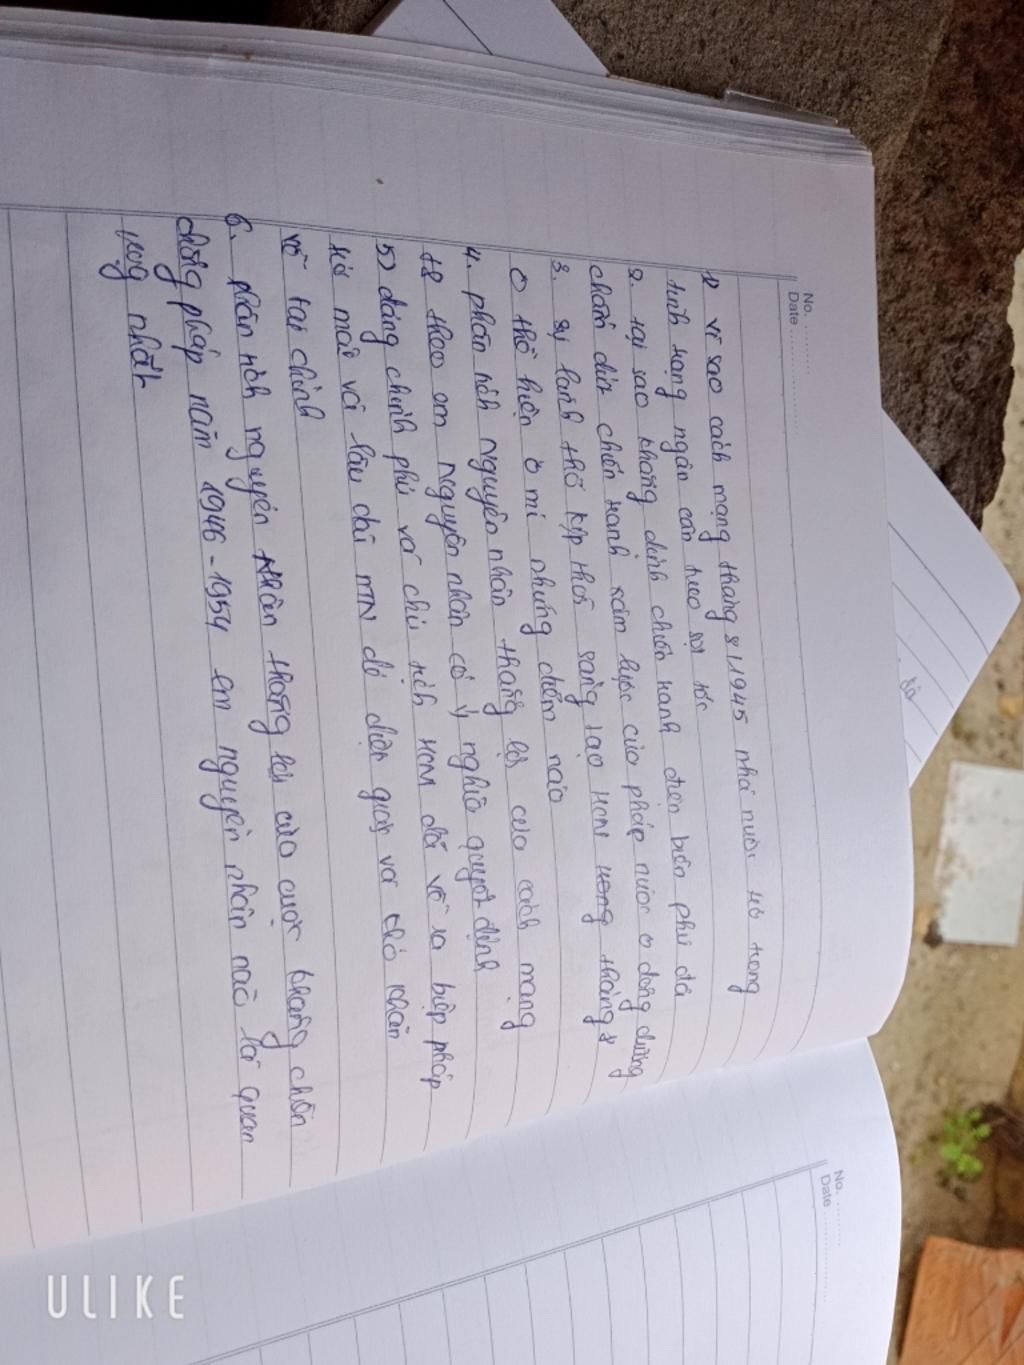 No. ............
Date ..................
1) vì sao cách mạng tháng 8/1945 nhà nước ... trong
tình trạng ngàn cân treo sợi tóc
2. tại sao khẳng định chiến tranh điện biên phủ đã
chấm dứt chiến tranh xâm lược của pháp nước ở đông dương
3. sự lãnh thổ kịp thời sáng tạo HCM trong tháng 8
thể hiện ở mi những điểm nào
4. phân tích nguyên nhân thắng lợi của cách mạng
t8 theo em nguyên nhân có ý nghĩa quyết định
5) đảng chính phủ và chủ tịch HCM đã về ra biện pháp
tức mắt và lâu dài mn để diện giặc và khó khăn
về tai chính
6. phân tích nguyên nhân thắng lợi của cuộc kháng chiến
chống pháp năm 1946-1954 em nguyên nhân nào là quan
trọng nhất
No. ............
Date ..................
đã
ULIKE